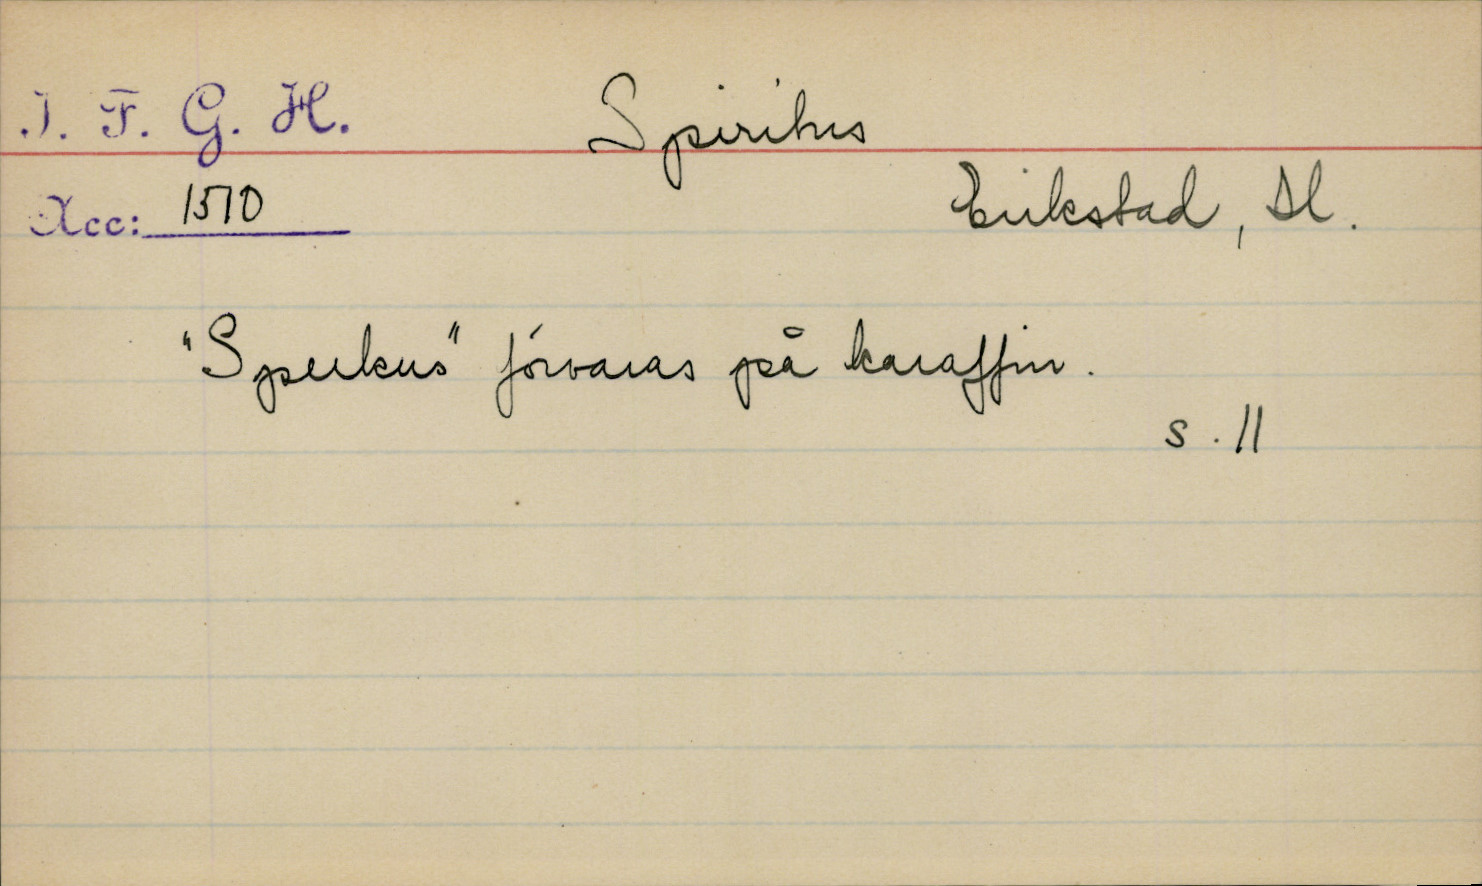 I. F. G. H.
Spiritus
Acc: 1510
Erikstad, Dl.
"Sperkus" förvaras på karaffin.
s. 11